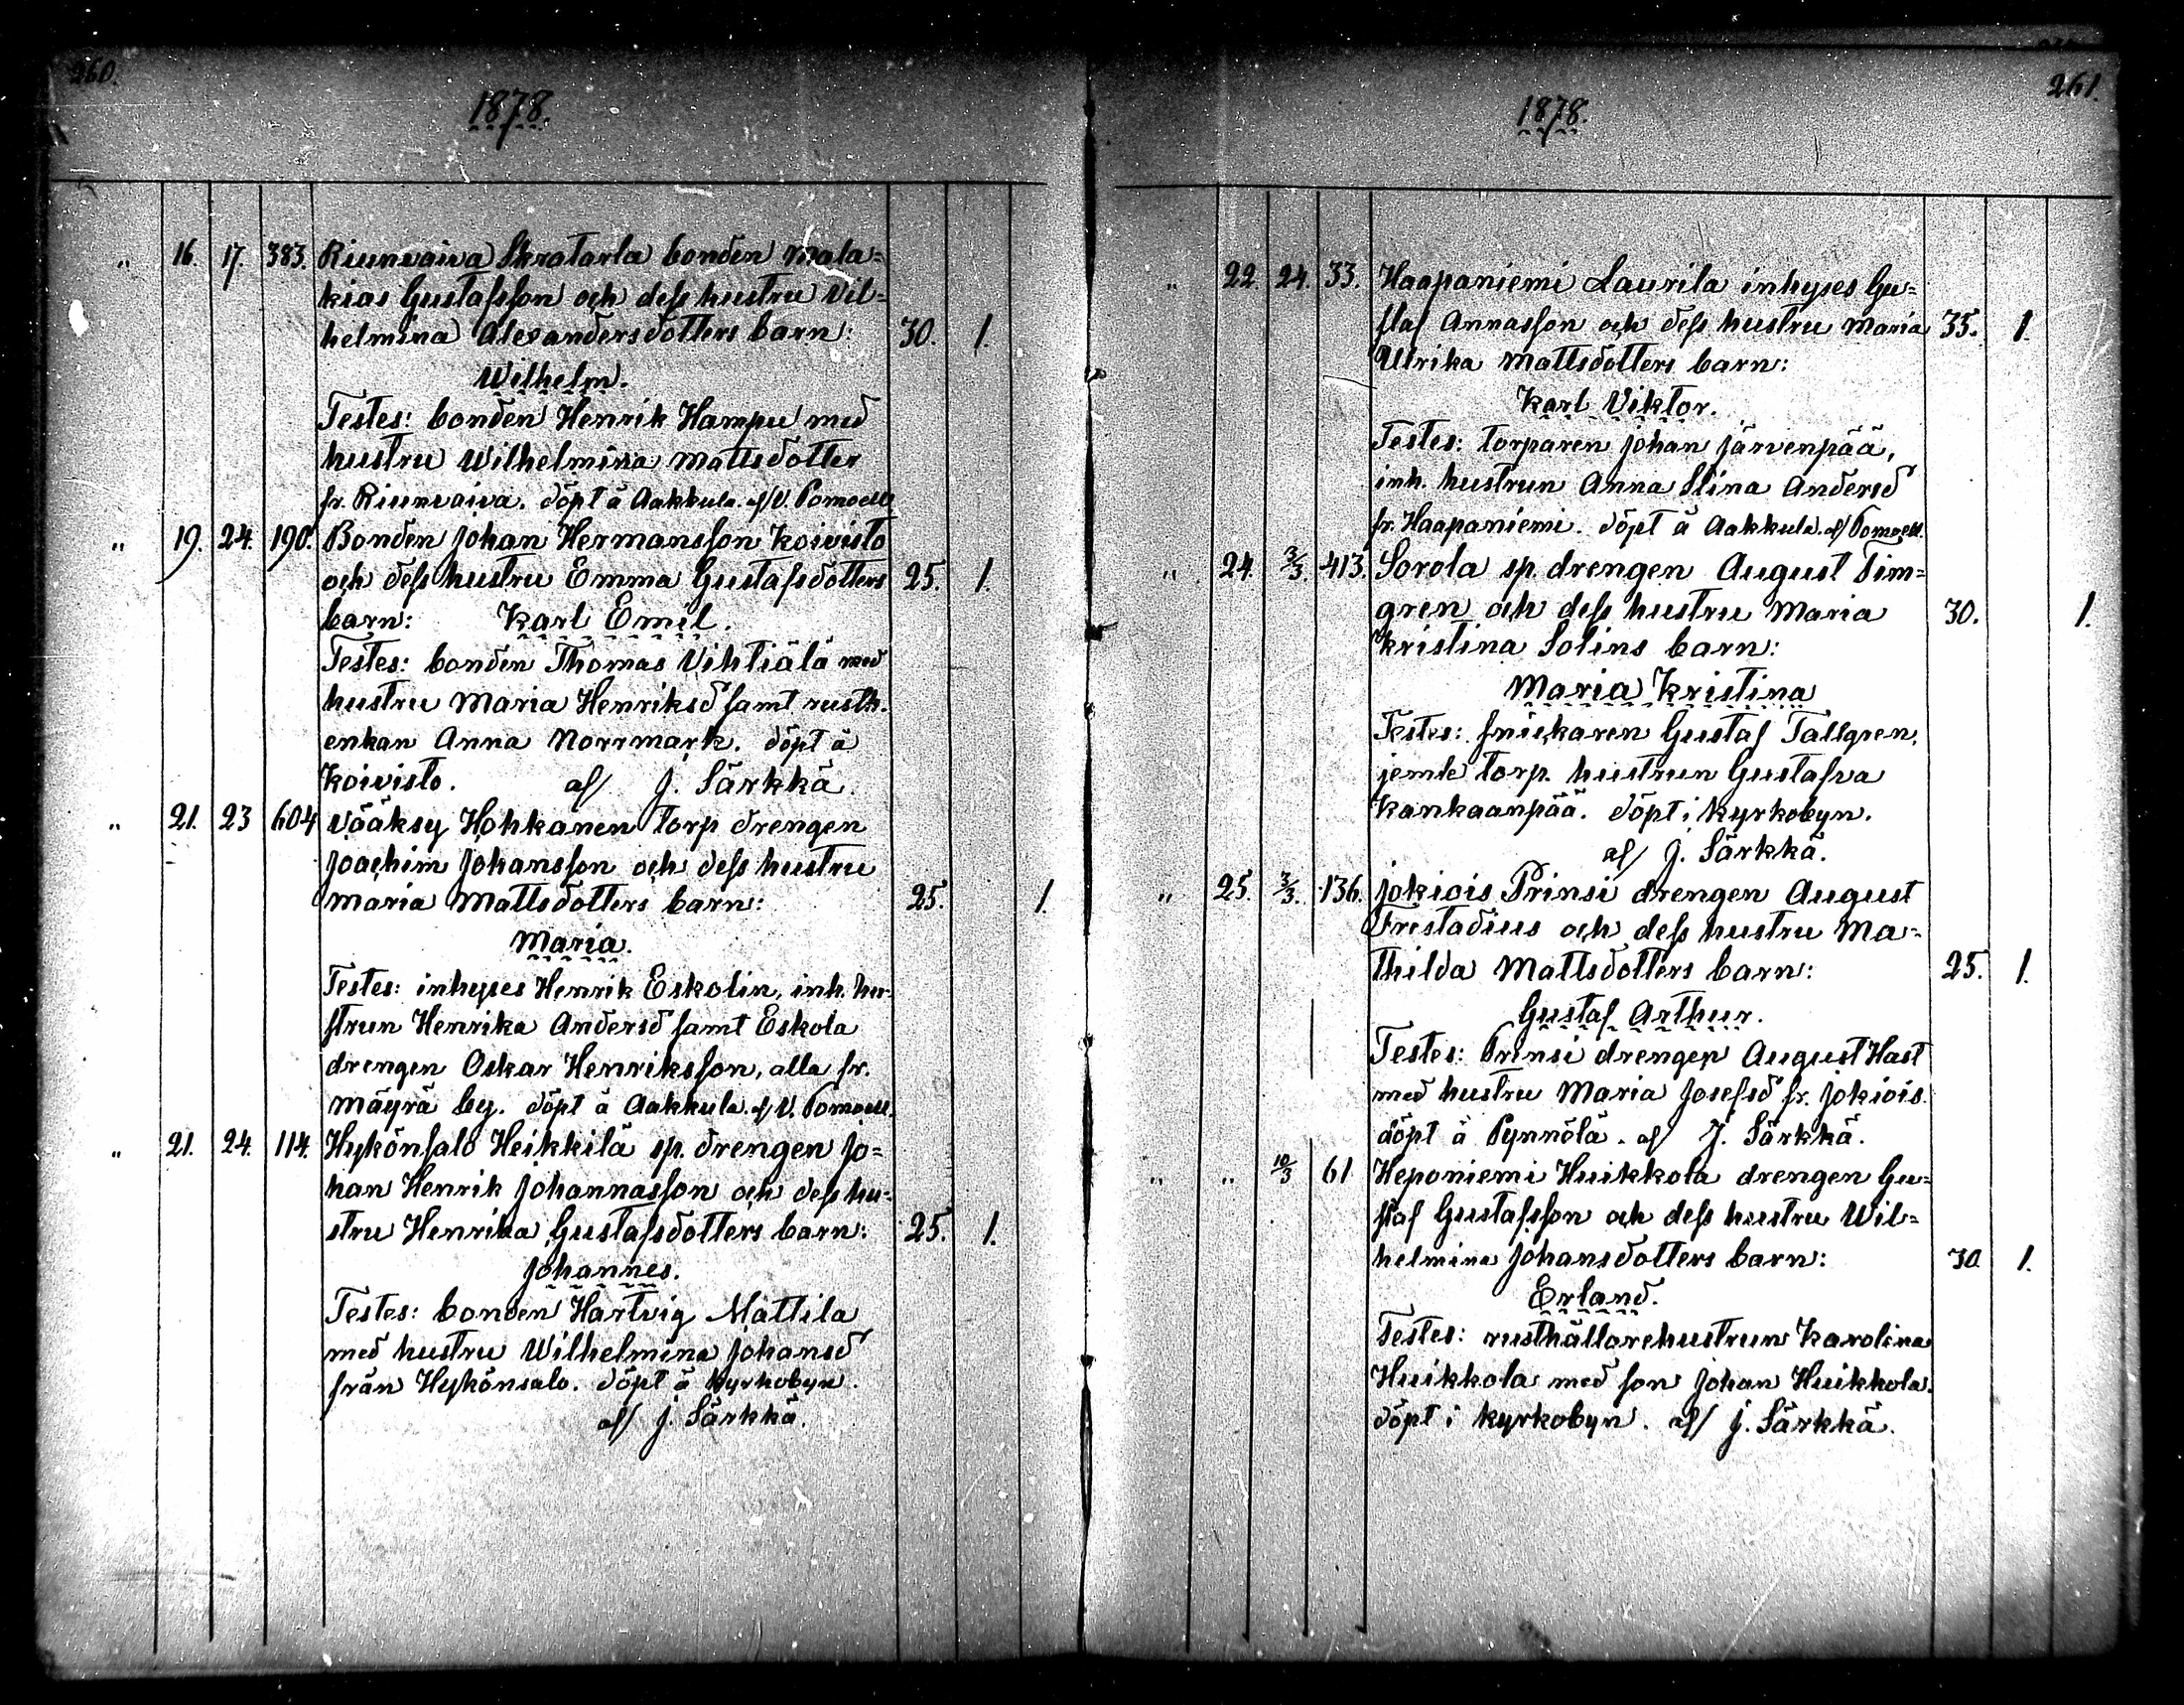 260.
1878.
" 16. 17. 383. Riunvaiva Skratarla bonden Mala=
kias Gustafsson och dess hustru Vil=
helmina Alexandersdotters barn: 30. 1.
Wilhelm.
Testes: bonden Henrik Hampu med
hustru Wilhelmina Mattsdotter
fr. Riunvaiva. döpt å Aakkula. af V. Pomoell
" 19. 24. 190. Bonden Johan Hermansson Koivisto
och dess hustru Emma Gustafsdotters 25. 1.
barn: Karl Emil.
Testes: bonden Thomas Vihtiälä med
hustru Maria Henriksd samt rusth.
enkan Anna Norrmark. döpt å
Koivisto. af J. Särkkä
" 21. 23 604 Vääksy Hohkanen torp drengen
Joachim Johansson och dess hustru
Maria Mattsdotters barn: 25. 1.
Maria.
Testes: inhyses Henrik Eskolin, inh. hu-
strun Henrika Andersd samt Eskola
drengen Oskar Henriksson, alla fr.
Mäyrä by. döpt å Aakkula. af V. Pomoell.
" 21. 24. 114. Hykönsalo Heikkilä sp. drengen Jo=
han Henrik Johannasson och dess hu=
stru Henrika Gustafsdotters barn: 25. 1.
Johannes.
Testes: bonden Hartvig Mattila
med hustru Wilhelmina Johansd
från Hykönsalo. döpt å Kyrkobyn.
af J. Särkkä.
261.
1878.
" 22. 24. 33. Haapaniemi Laurila inhyses Gu=
staf Annasson och dess hustru Maria 35. 1.
Ulrika Mattsdotters barn:
Karl Viktor.
Testes: torparen Johan Järvenpää,
inh. hustrun Anna Stina Andersd
fr. Haapaniemi. döpt å Aakkula. af Pomoell.
" 24. 3/3. 413. Sorola sp. drengen August Tim=
gren och dess hustru Maria 30. 1.
Kristina Solins barn:
Maria Kristina
Testes: snickaren Gustaf Tallgren,
jemte torp. hustrun Gustafva
Kankaanpää. döpt i Kyrkobyn.
af J. Särkkä.
" 25. 3/3. 136. Jokiois Prinsi drengen August
Fristadius och dess hustru Ma=
thilda Mattsdotters barn: 25. 1.
Gustaf Arthur.
Testes: Prinsi drengen August Hast
med hustru Maria Josefsd fr. Jokiois.
döpt å Pynnölä. af J. Särkkä.
" " 10/3 61 Heponiemi Huikkola drengen Gu=
staf Gustafsson och dess hustru Wil=
helmina Johansdotters barn: 30 1.
Erland.
Testes: rusthållarehustrun Karolina
Huikkola med son Johan Huikkola.
döpt i kyrkobyn. af J. Särkkä.